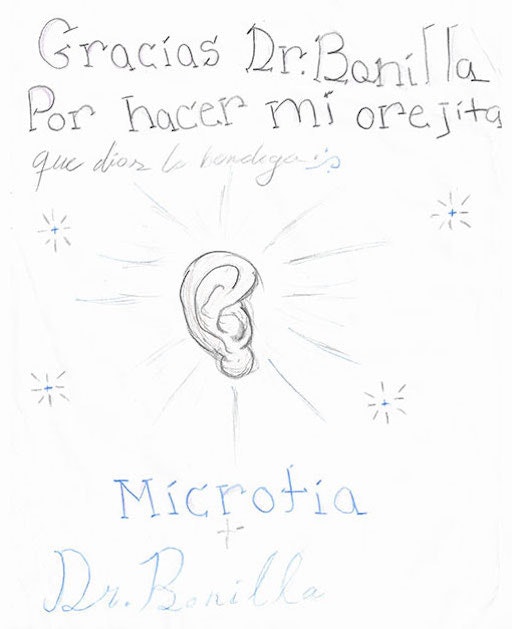 Gracias Dr. Bonilla
Por hacer mi orejita
que dios lo bendiga
Microtia
+
Dr. Bonilla